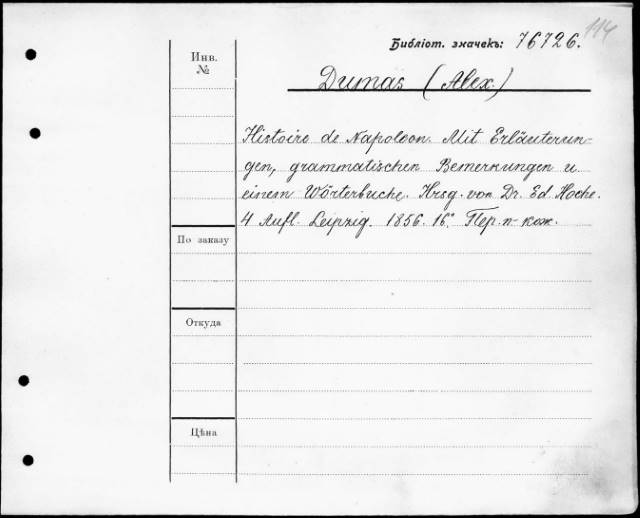 114
Библіот. значекъ: 76726.
Инв.
№
Dumas (Alex.)
Histoire de Napoleon. Mit Erläuterun-
gen, grammatischen Bemerkungen u.
einem Wörterbuche. Hrsg. von Dr. Ed. Hoche.
4 Aufl. Leipzig. 1856. 16°. Пер. п-кож.
По заказу
Откуда
Цѣна